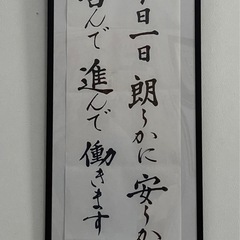 今日一日朗らかに安らか
喜んで進んで働きます